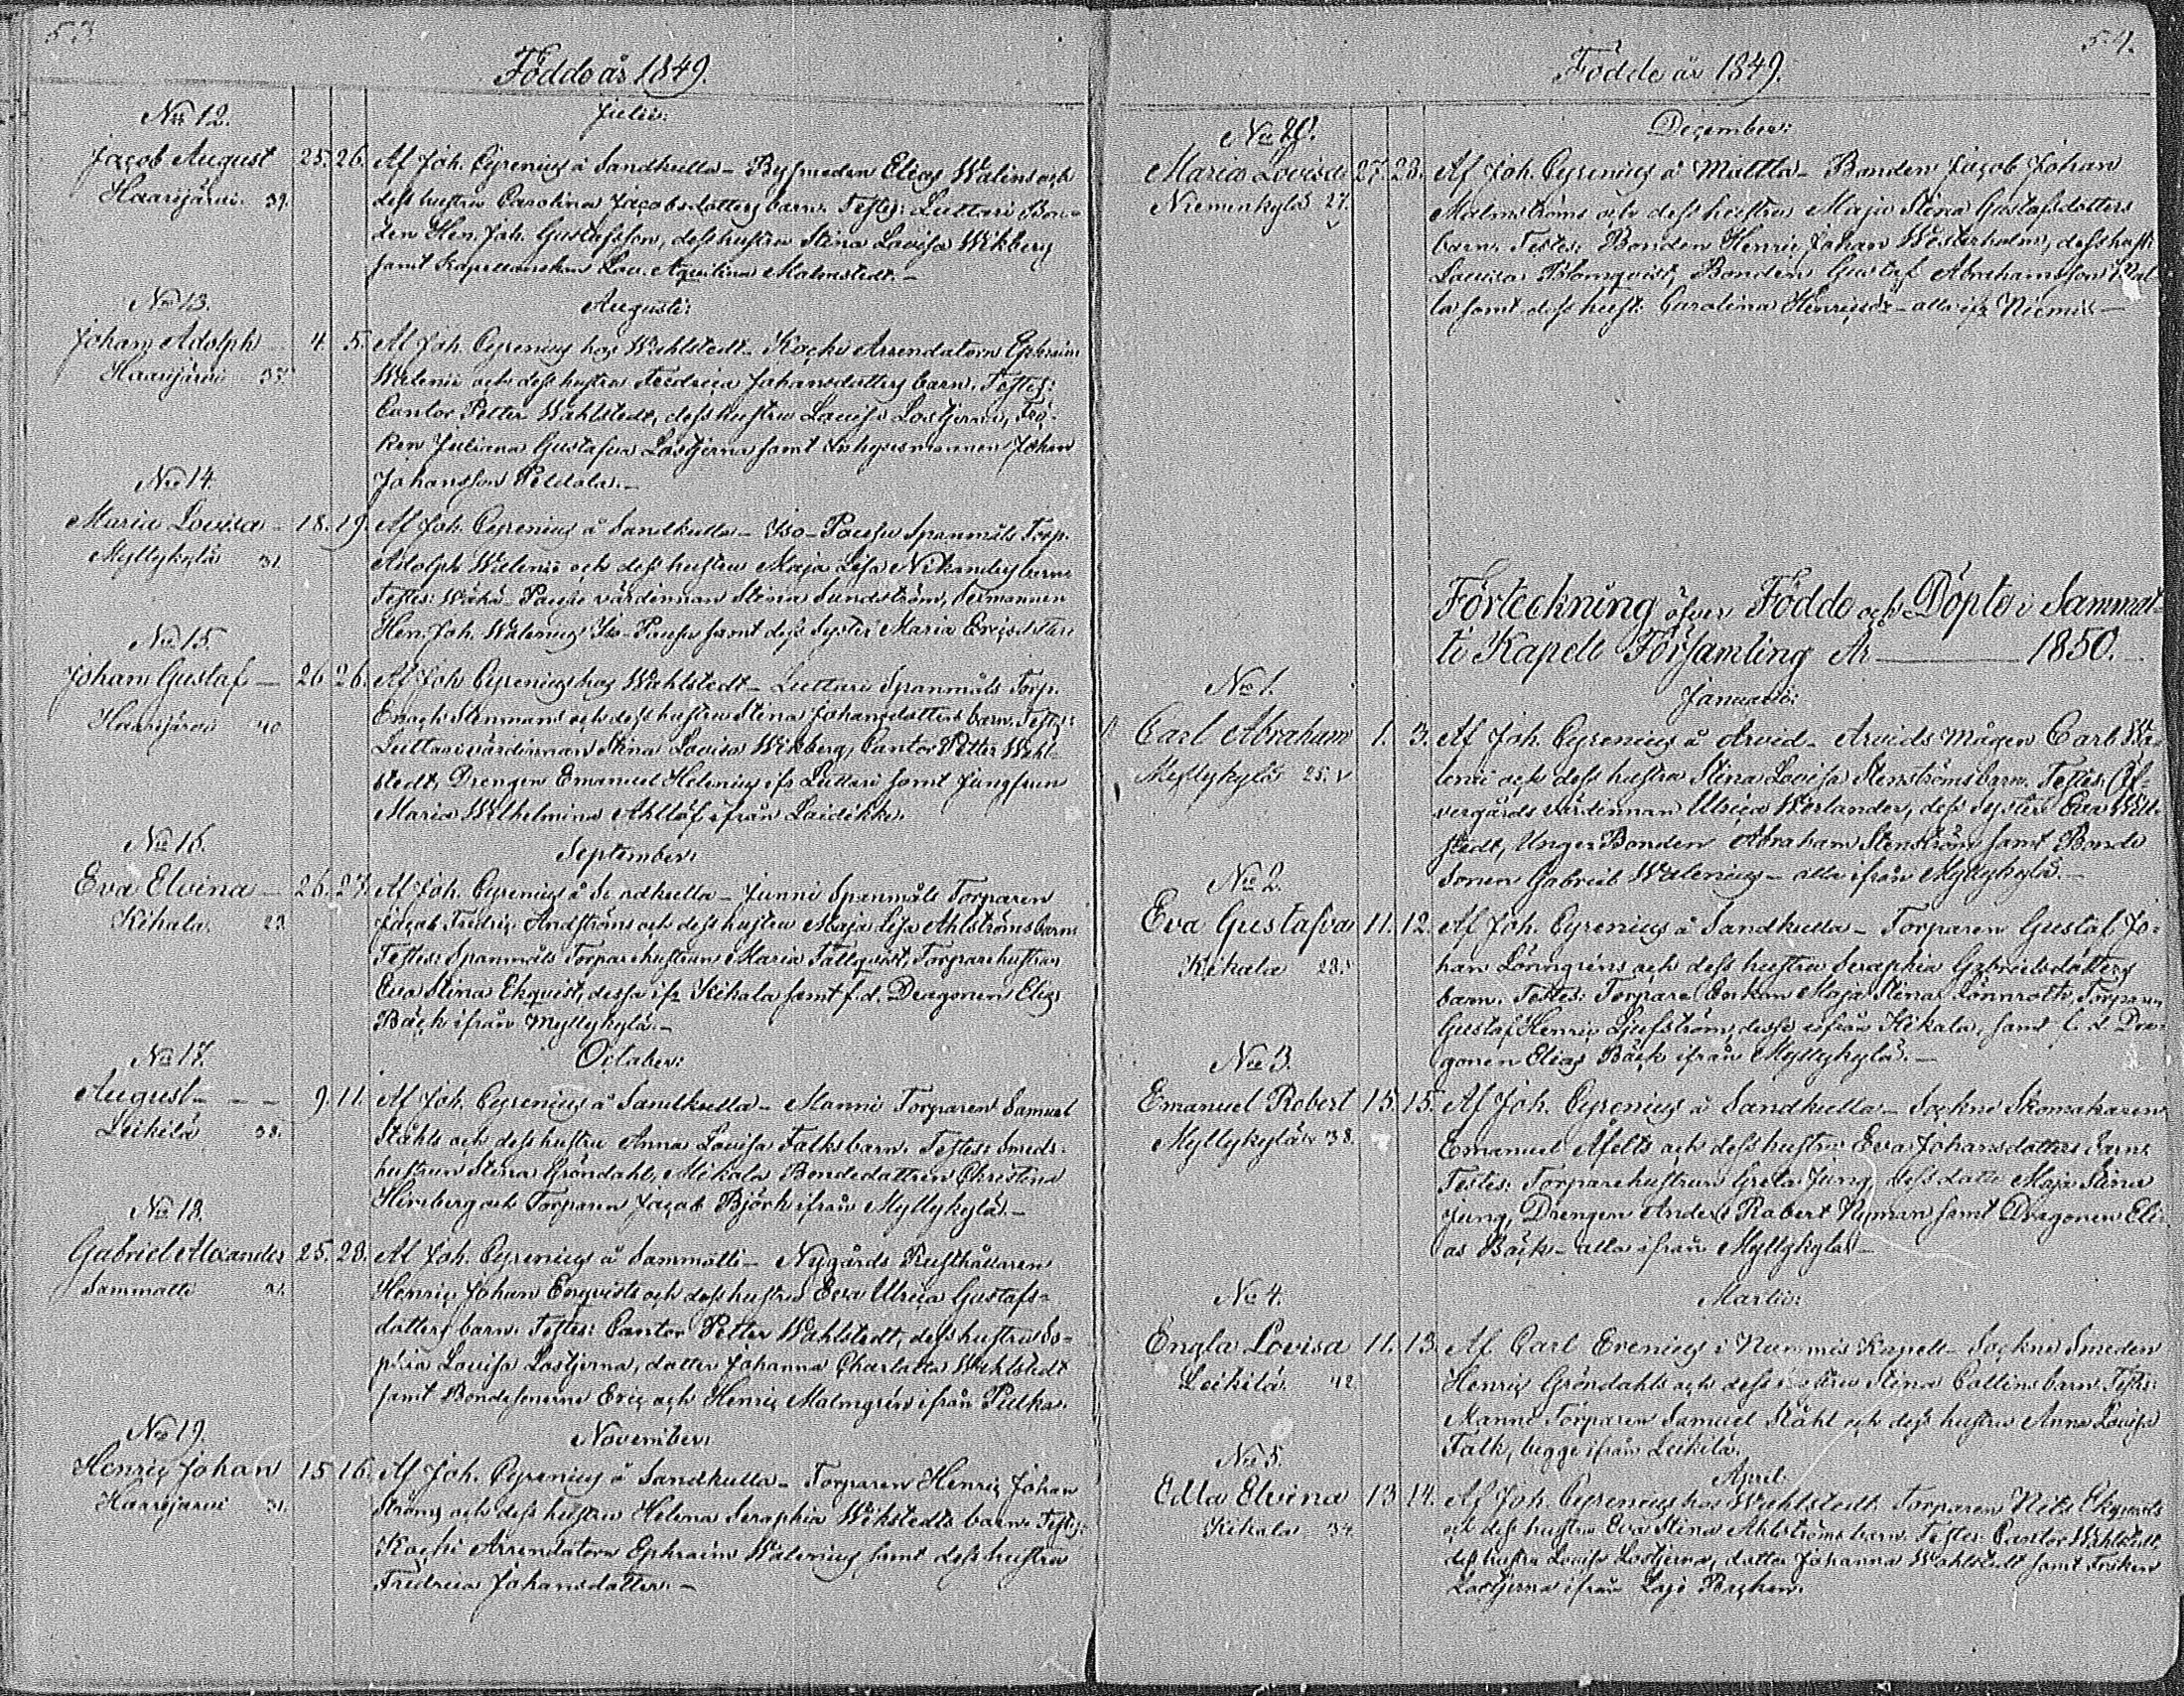 53.
Födde år 1849.
Julii:
No 12.
Jacob August 25. 26.
Haarijärvi 39.
Af Joh. Cyrenius å Sandkulla - Bysmeden Elias Walins och
dess hustru Carolina Jacobsdotters barn. Testes: Luttari Bon-
den Hen. Joh. Gustafsson, dess hustru Stina Lovisa Wikberg
samt Kapellanskan Lov. Aquilina Malmstedt.-
Augusti:
No 13.
Johan Adolph 4. 5.
Haarijärvi 35.
Af Joh. Cyrenius hos Wahlstedt - Kocki Arrendatorn Ephraim
Walenii och dess hustru Fredrica Johansdotters barn. Testes:
Cantor Petter Wahlstedt, dess hustru Lovisa Lostjerna, Frö-
ken Juliana Gustafva Lostjerna samt Johan
Johansson Peldola.-
No 14.
Maria Lovisa - 18. 19.
Myllykylä 31.
Af Joh. Cyrenius å Sandkulla - Iso-Pauhu Spanmåls Torp.
Adolph Walenii och dess hustru Maja Lisa Nikanders barn
Testes: Wähä-Pauhu värdinnan Stina Sundström,
Hen. Joh. Walenius Iso-Pauhu samt dess syster Maria Ericsdotter.
No 15.
Johan Gustaf - 26 26.
Haarijärvi 40.
Af Joh Cyrenius hos Wahlstedt - Luttari Spanmåls Torp.
Enoch Stenmans och dess hustru Stina Johansdotters barn. Testes:
Luttari värdinnan Stina Lovisa Wikberg, Cantor Petter Wahl-
stedt, Drengen Emanuel Helenius ifr Luttari samt Jungfrun
Maria Wilhelmina Ahllöf ifrån Laidikke.
September:
No 16.
Eva Elvina - 26. 27.
Kikala. 23
Af Joh. Cyrenius å Sandkulla - Junni Spanmåls Torparen
Jacob Fredric Andströms och dess hustru Maja Lisa Ahlströms barn
Testes: Spanmåls Torparehustrun Maria Tallqvist, Torparehustrun
Eva Stina Ekquist, dessa ifr Kikala samt f.d. Dragonen Elias
Bäck ifrån Myllykylä.-
October:
No 17.
August - - - 9. 11.
Leikilä 38.
Af Joh. Cyrenius å Sandkulla - Manni Torparen Samuel
Ståhls och dess hustru Anna Lovisa Falks barn. Testes: Smeds-
hustrun Stina Gröndahl, Mikola Bondedottren Christina
Hirnberg och Torparen Jacob Björk ifrån Myllykylä.-
No 18.
Gabriel Alexander 25. 28.
Sammatti
Af Joh. Cyrenius å Sammatti - Nygårds Rusthållaren
Henric Johan Enqvists och dess hustru Eva Ulrica Gustafs-
dotters barn. Testes: Cantor Petter Wahlstedt, dess hustru So-
phia Lovisa Lostjerna, dotter Johanna Charlotta Wahlstedt
samt Bondesönerne Eric och Henric Malmgrén ifrån Pulka.
November:
No 19.
Henric Johan 15 16.
Haarijärvi 31.
Af Joh. Cyrenius å Sandkulla - Torparen Henric Johan
Ströms och dess hustru Helena Seraphia Wikstedts barn. Testes:
Kocki Arrendatorn Ephraim Walenius samt dess hustru
Fredrica Johansdotter.-
54.
Födde år 1849.
December:
No 20.
Maria Lovisa 27. 28.
Niemenkylä 27.
Af Joh. Cyrenius å Mattla - Bonden Jacob Johan
Malmströms och dess hustru Maja Stina Gustafsdotters
barn. Testes: Bonden Henric Johan Westerholm, dess hust:
Lovisa Blomqvist, Bonden Gustaf Abrahamsson
la samt dess hust: Carolina Henricsdr - alla ifr Niemis -
Förteckning öfver Födde och Döpte i Sammat-
ti Kapell Församling År — 1850.
Januarii:
No 1.
Carl Abraham 1. 3.
Myllykylä 25. v
Af Joh. Cyrenius å Arvid - Arvids mågen Carl Wa-
lenii och dess hustru Stina Lovisa Stenströms barn. Testes: Öf-
vergårds värdinnan Ulrica Werlander, dess syster Eva Will-
stedt, Unger Bonden Abraham Stenström samt Bonde
sonen Gabriel Walenius - alla ifrån Myllykylä.-
No 2.
Eva Gustafva 11. 12.
Kikala 28.
Af Joh. Cyrenius å Sandkulla - Torparen Gustaf Jo-
han Lönngréns och dess hustru Seraphia Gabrielsdotters
barn. Testes: Torpare Enkan Maja Stina Lönnroth, Torparen
Gustaf Henric Ljufström, dessa ifrån Kikala, samt f. d. Dra-
gonen Elias Bäck ifrån Myllykylä.-
No 3.
Emanuel Robert 15. 15.
Myllykylä 38.
Af Joh. Cyrenius å Sandkulla - Sockne Skomakaren
Emanuel Åfelts och dess hustru Eva Johansdotters barn.
Testes: Torparehustrun Greta Jung, dess dotter Maja Stina
Jung, Drengen Anders Robert Nyman samt Dragonen Eli-
as Bäck - alla ifrån Myllykylä.-
Martii:
No 4.
Engla Lovisa 11. 13.
Leikilä 42
Af Carl Evenius i Nummis Kapell - Sockne Smeden
Henric Gröndahls och dess hustru Stina Collins barn. Testes:
Manni Torparen Samuel Ståhl och dess hustru Anna Lovisa
Falk, begge ifrån Leikilä.
April.
No 5.
Edla Elvina 13 14.
Kikala 34
Af Joh. Cyrenius hos Wahlstedt. Torparen Nils Ekquists
och dess hustru Eva Stina Ahlströms barn. Testes: Cantor Wahlstedt,
dess hustru Lovisa Lostjerna, dotter Johanna Wahlstedt samt Fröken
Lostjerna ifrån